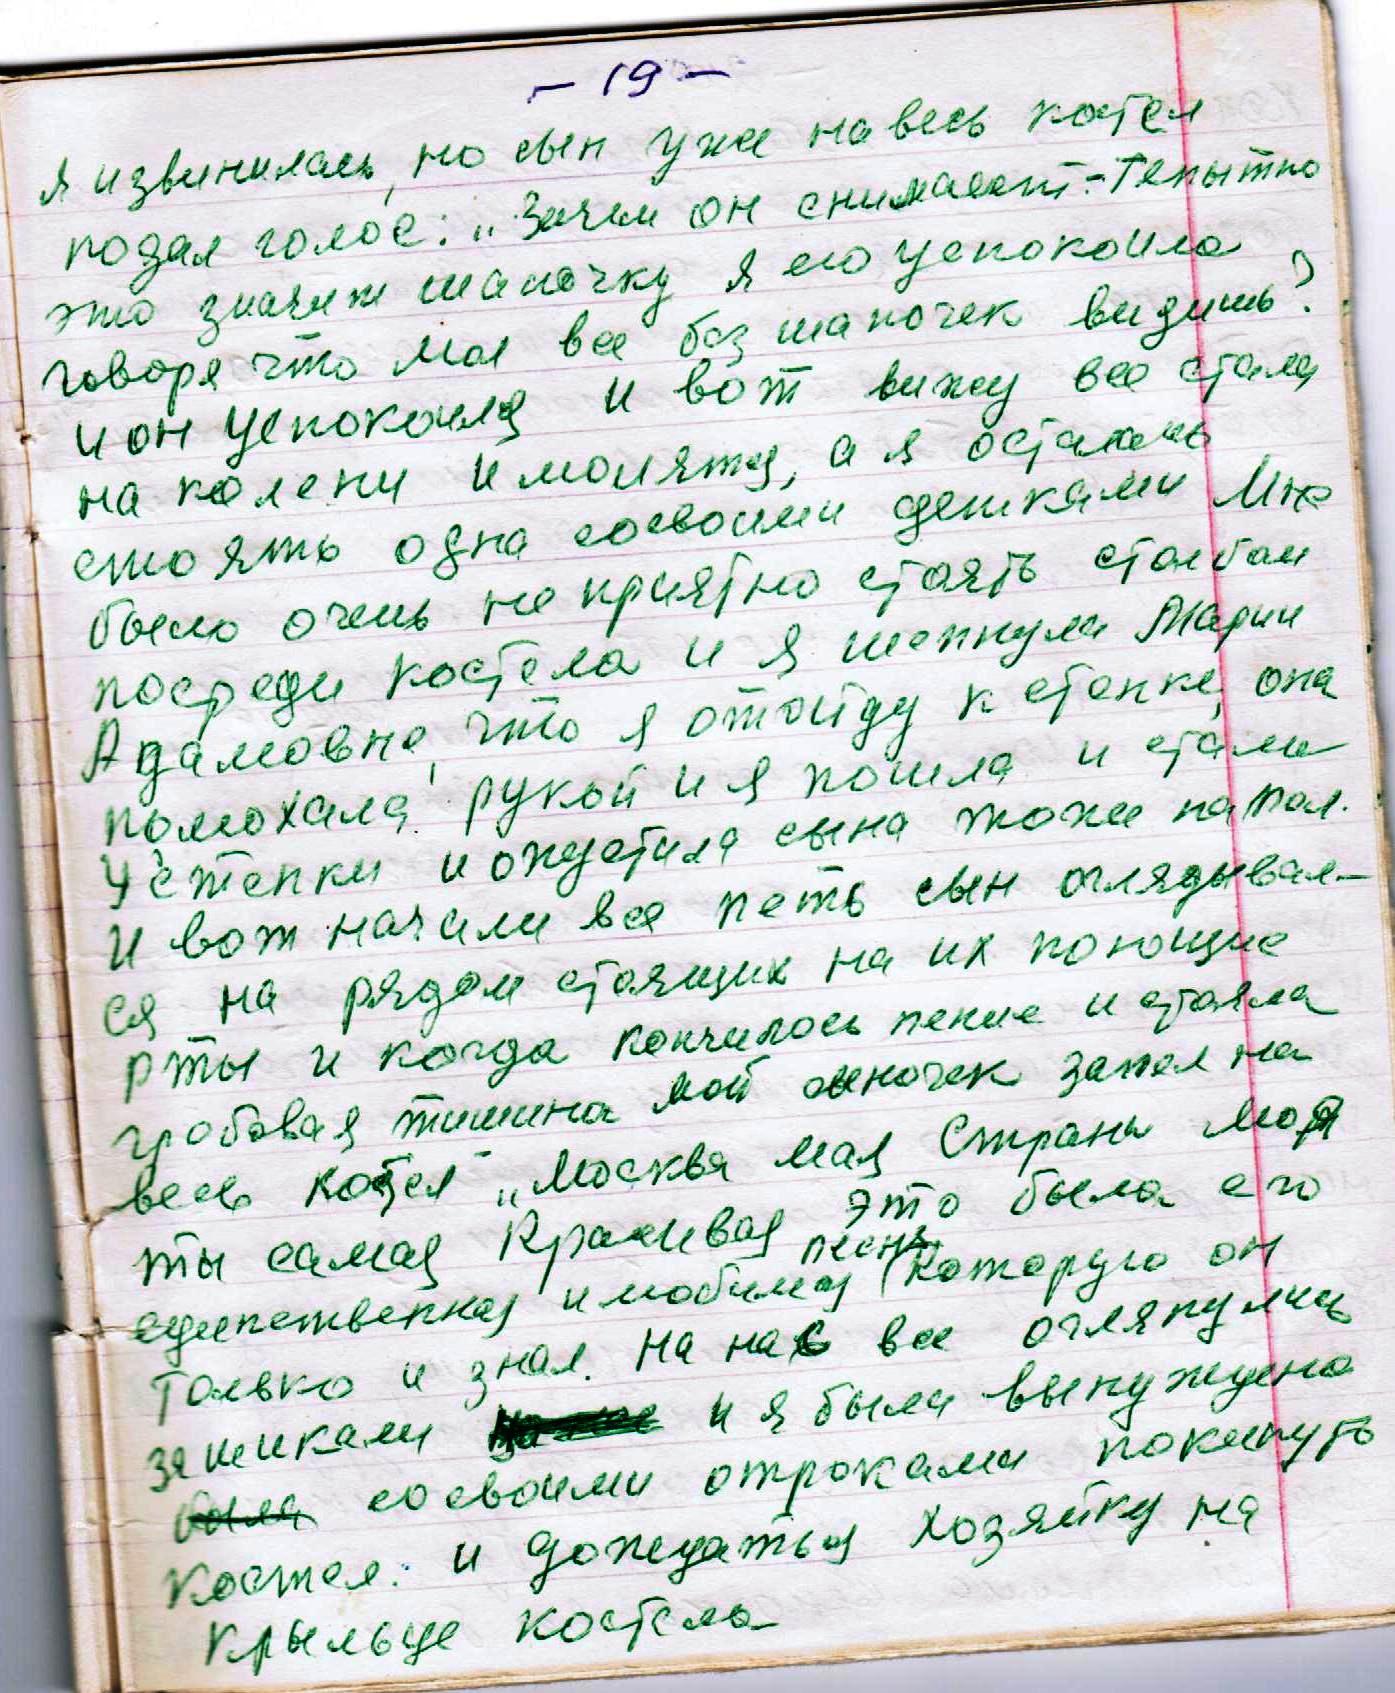 - 19 -
я извинилась, но сын уже на весь костел
подал голос: „Зачем он снимает:-
это значит шапочку я его успокоила
говоря что мол все без шапочек видишь?
и он успокоился и вот вижу все стали
на колени и молятся, а я осталась
стоять одна со своими детками Мне
было очень не приятно стоять столбом
посреди костела и я шепнула Марии
Адамовне, что я отойду к стенке, она
помохала рукой и я пошла и стала
у стенки и опустила сына тоже на пол.
И вот начали все петь сын оглядывал-
ся на рядом стоящих на их поющие
рты и когда кончилось пение и стояла
гробовая тишина мой сыночек запел на
весь костел „Москва мая Страна Моя
ты самая Красивая это была его
единственная и любимая песня которую он
только и знал. На нас все оглянулись
зашикали и я была вынуждена
была со своими отроками покинуть
костел. и дожидаться хозяйку на
крыльце костела